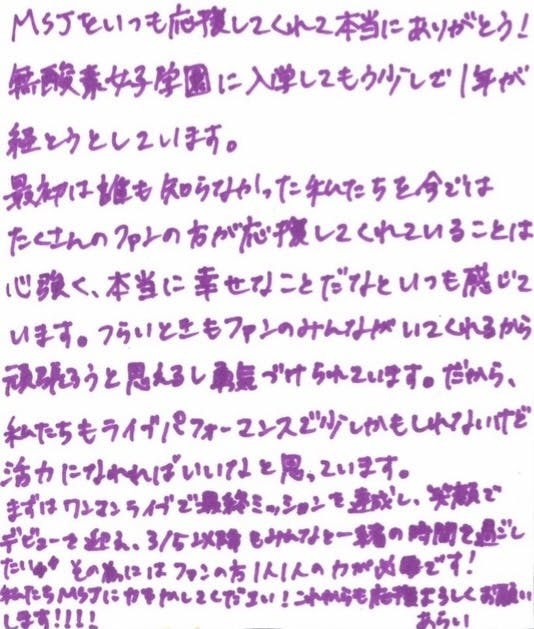 MSJをいつも応援してくれて本当にありがとう！
無酸素女子学園に入学してもう少しで1年が
経とうとしています。
最初は誰も知らなかった私たちを今では
たくさんのファンの方が応援してくれていることは
心強く、本当に幸せなことだなといつも感じて
います。つらいときもファンのみんながいてくれるから
頑張ろうと思えるし勇気づけられています。だから、
私たちもライブパフォーマンスで少しかもしれないけど
活力になれればいいなと思っています。
まずはワンマンライブで最終ミッションを達成し、笑顔で
デビューを迎え、3/5以降もみんなと一緒の時間を過ごし
たいです その為にはファンの方1人1人の力が必要です！
私たちMSJに力をかしてください！これからも応援よろしくお願い
します！！！！
あらい